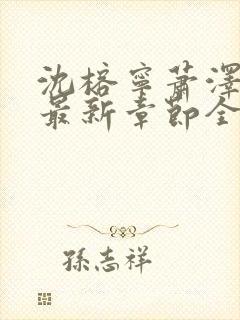 沈榕寧蕭澤
最新章節全
孫志祥